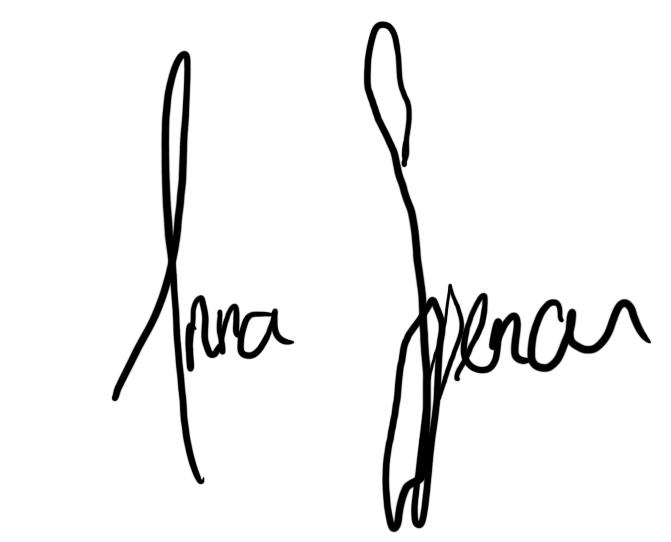 Anna Spencer